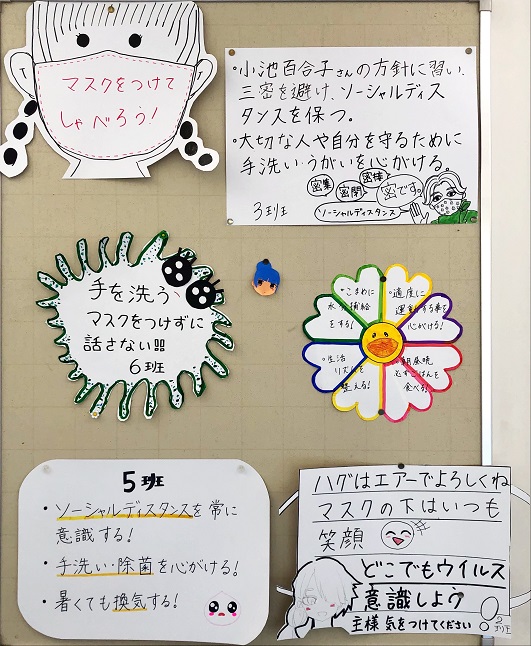 マスクをつけて
しゃべろう!
・小池百合子さんの方針に習い、
三密を避け、ソーシャルディス
タンスを保つ。
・大切な人や自分を守るために
手洗い・うがいを心がける。
密集
密閉
密接
密です。
ソーシャルディスタンス
3班
手を洗う、
マスクをつけずに
話さない!!
6班
・こまめに
水分補給
をする!
・適度に
運動する事を
心がける!
・生活
リズムを
整える!
・朝昼晩
必ずごはんを
食べる!
5班
・ソーシャルディスタンスを常に
意識する!
・手洗い・除菌を心がける!
・暑くても換気する!
ハグはエアーでよろしくね
マスクの下はいつも
笑顔
どこでもウイルス
意識しよう!
主様 気をつけてください
2班